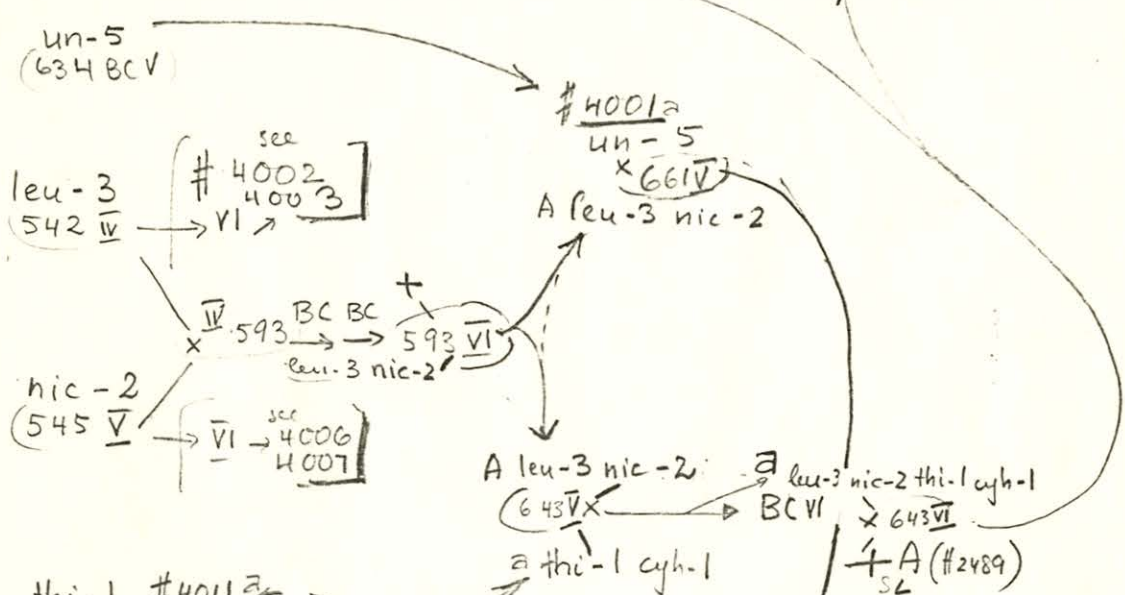 un-5
(634 BC V)
#4001a
un-5
× 661 V
A leu-3 nic-2
see
# 4002
4003
leu-3
542 IV → VI ↗
+
IV 593 BC → BC → 593 VI
×
leu-3 nic-2
nic-2
(545 V → VI → see 4006
4007
A leu-3 nic-2
(643 V ×
a thi-1 cyh-1
a leu-3 nic-2 thi-1 cyh-1
BC VI × 643 VI
+ A (#2489)
SL
thi-1 #4011 a